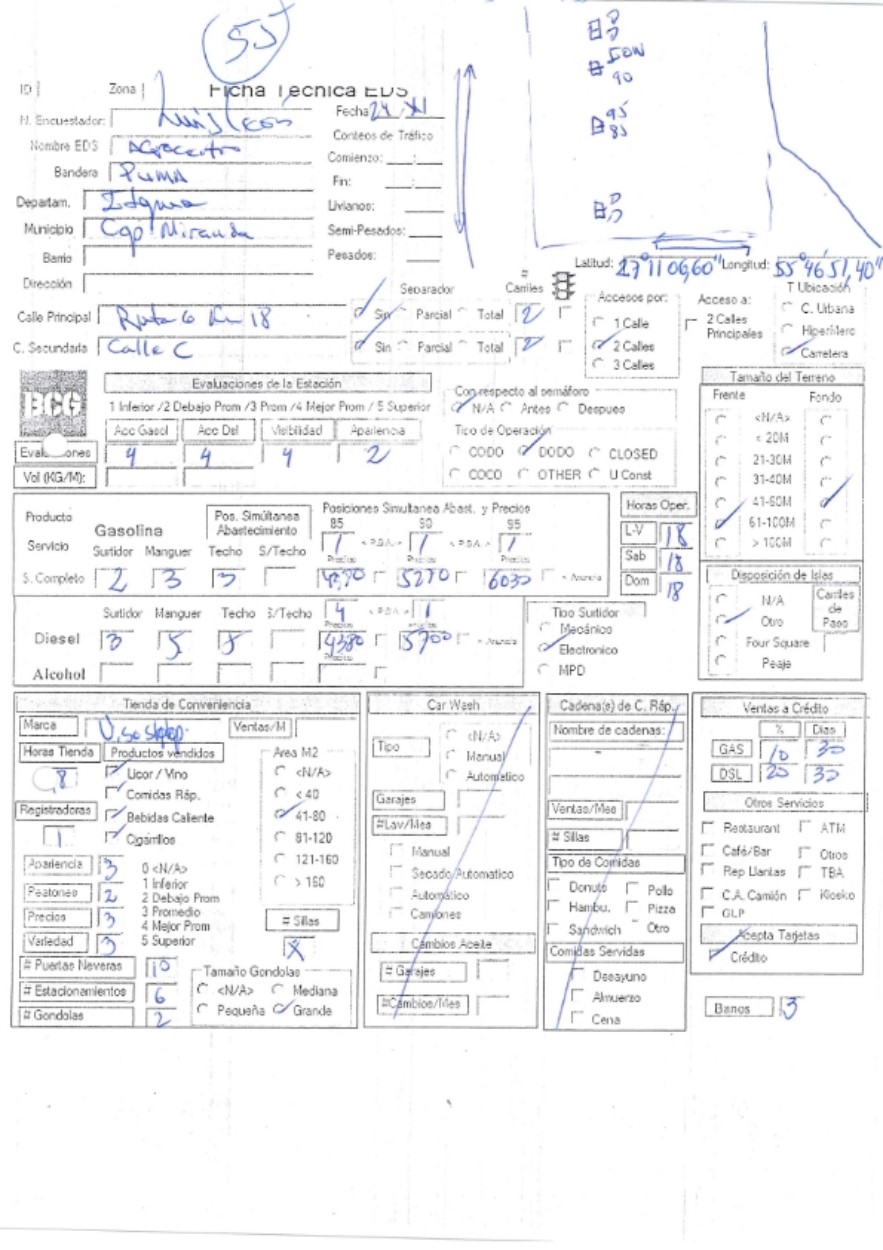 55
ID Zona Ficha Técnica EDS
N. Encuestador: Luis León Fecha 24 XI
Nombre EDS Agrocentro Conteos de Tráfico
Bandera PUMA Comienzo:
Fin:
Departam. Itapua Livianos:
Municipio Cap Miranda Semi-Pesados:
Barrio Pesados:
Dirección
90
95
85
Latitud: 27°11 06,60" Longitud: 55°46'51,40"
Separador # Carriles Accesos por: Acceso a: T Ubicación
Calle Principal Ruta 6 Km 18 Sin Parcial Total 2 1 Calle 2 Calles Principales C. Urbana
2 Calles HiperMerc
C. Secundaria Calle C Sin Parcial Total 2 3 Calles Carretera
BCG
Evaluaciones de la Estación
1 Inferior /2 Debajo Prom /3 Prom /4 Mejor Prom / 5 Superior
Acc Gasol Acc Dsl Visibilidad Apariencia
4 4 4 2
Vol (KG/M):
Con respecto al semáforo
N/A Antes Despues
Tipo de Operación
CODO DODO CLOSED
COCO OTHER U Const
Tamaño del Terreno
Frente Fondo
<N/A>
< 20M
21-30M
31-40M
41-60M
61-100M
> 100M
Producto Gasolina Pos. Simúltanea Abastecimiento Posiciones Simultanea Abast. y Precios
85 90 95
Servicio Surtidor Manguer Techo S/Techo 1 1 1
Precios
S. Completo 2 3 3 5270 6030
Horas Oper.
L-V 18
Sab 18
Dom 18
Surtidor Manguer Techo S/Techo 4 1
Diesel 3 5 4380 5700
Alcohol
Tipo Surtidor
Mecánico
Electronico
MPD
Disposición de Islas
N/A Carriles de Paso
Otro
Four Square
Peaje
Tienda de Conveniencia
Marca Ventas/M
Horas Tienda Productos vendidos Area M2
Licor / Vino <N/A>
Comidas Ráp. < 40
Registradoras Bebidas Caliente 41-80
1 Cigarrillos 81-120
121-160
> 160
Apariencia 3 0 <N/A>
Peatones 2 1 Inferior
2 Debajo Prom
Precios 3 3 Promedio
4 Mejor Prom # Sillas
Variedad 3 5 Superior X
# Puertas Neveras 10 Tamaño Gondolas
# Estacionamientos 6 <N/A> Mediana
# Gondolas 2 Pequeña Grande
Car Wash
Tipo <N/A>
Manual
Automatico
Garajes
#Lav/Mes
Manual
Secado Automatico
Automático
Camiones
Cambios Aceite
# Garajes
#Cambios/Mes
Cadena(e) de C. Ráp.
Nombre de cadenas:
Ventas/Mes
# Sillas
Tipo de Comidas
Donuts Pollo
Hambu. Pizza
Sandwich Otro
Comidas Servidas
Desayuno
Almuerzo
Cena
Ventas a Crédito
% Dias
GAS 10 30
DSL 20 30
Otros Servicios
Restaurant ATM
Café/Bar Otros
Rep Llantas TBA
C.A. Camión Kiosko
GLP
Acepta Tarjetas
Crédito
Banos 3